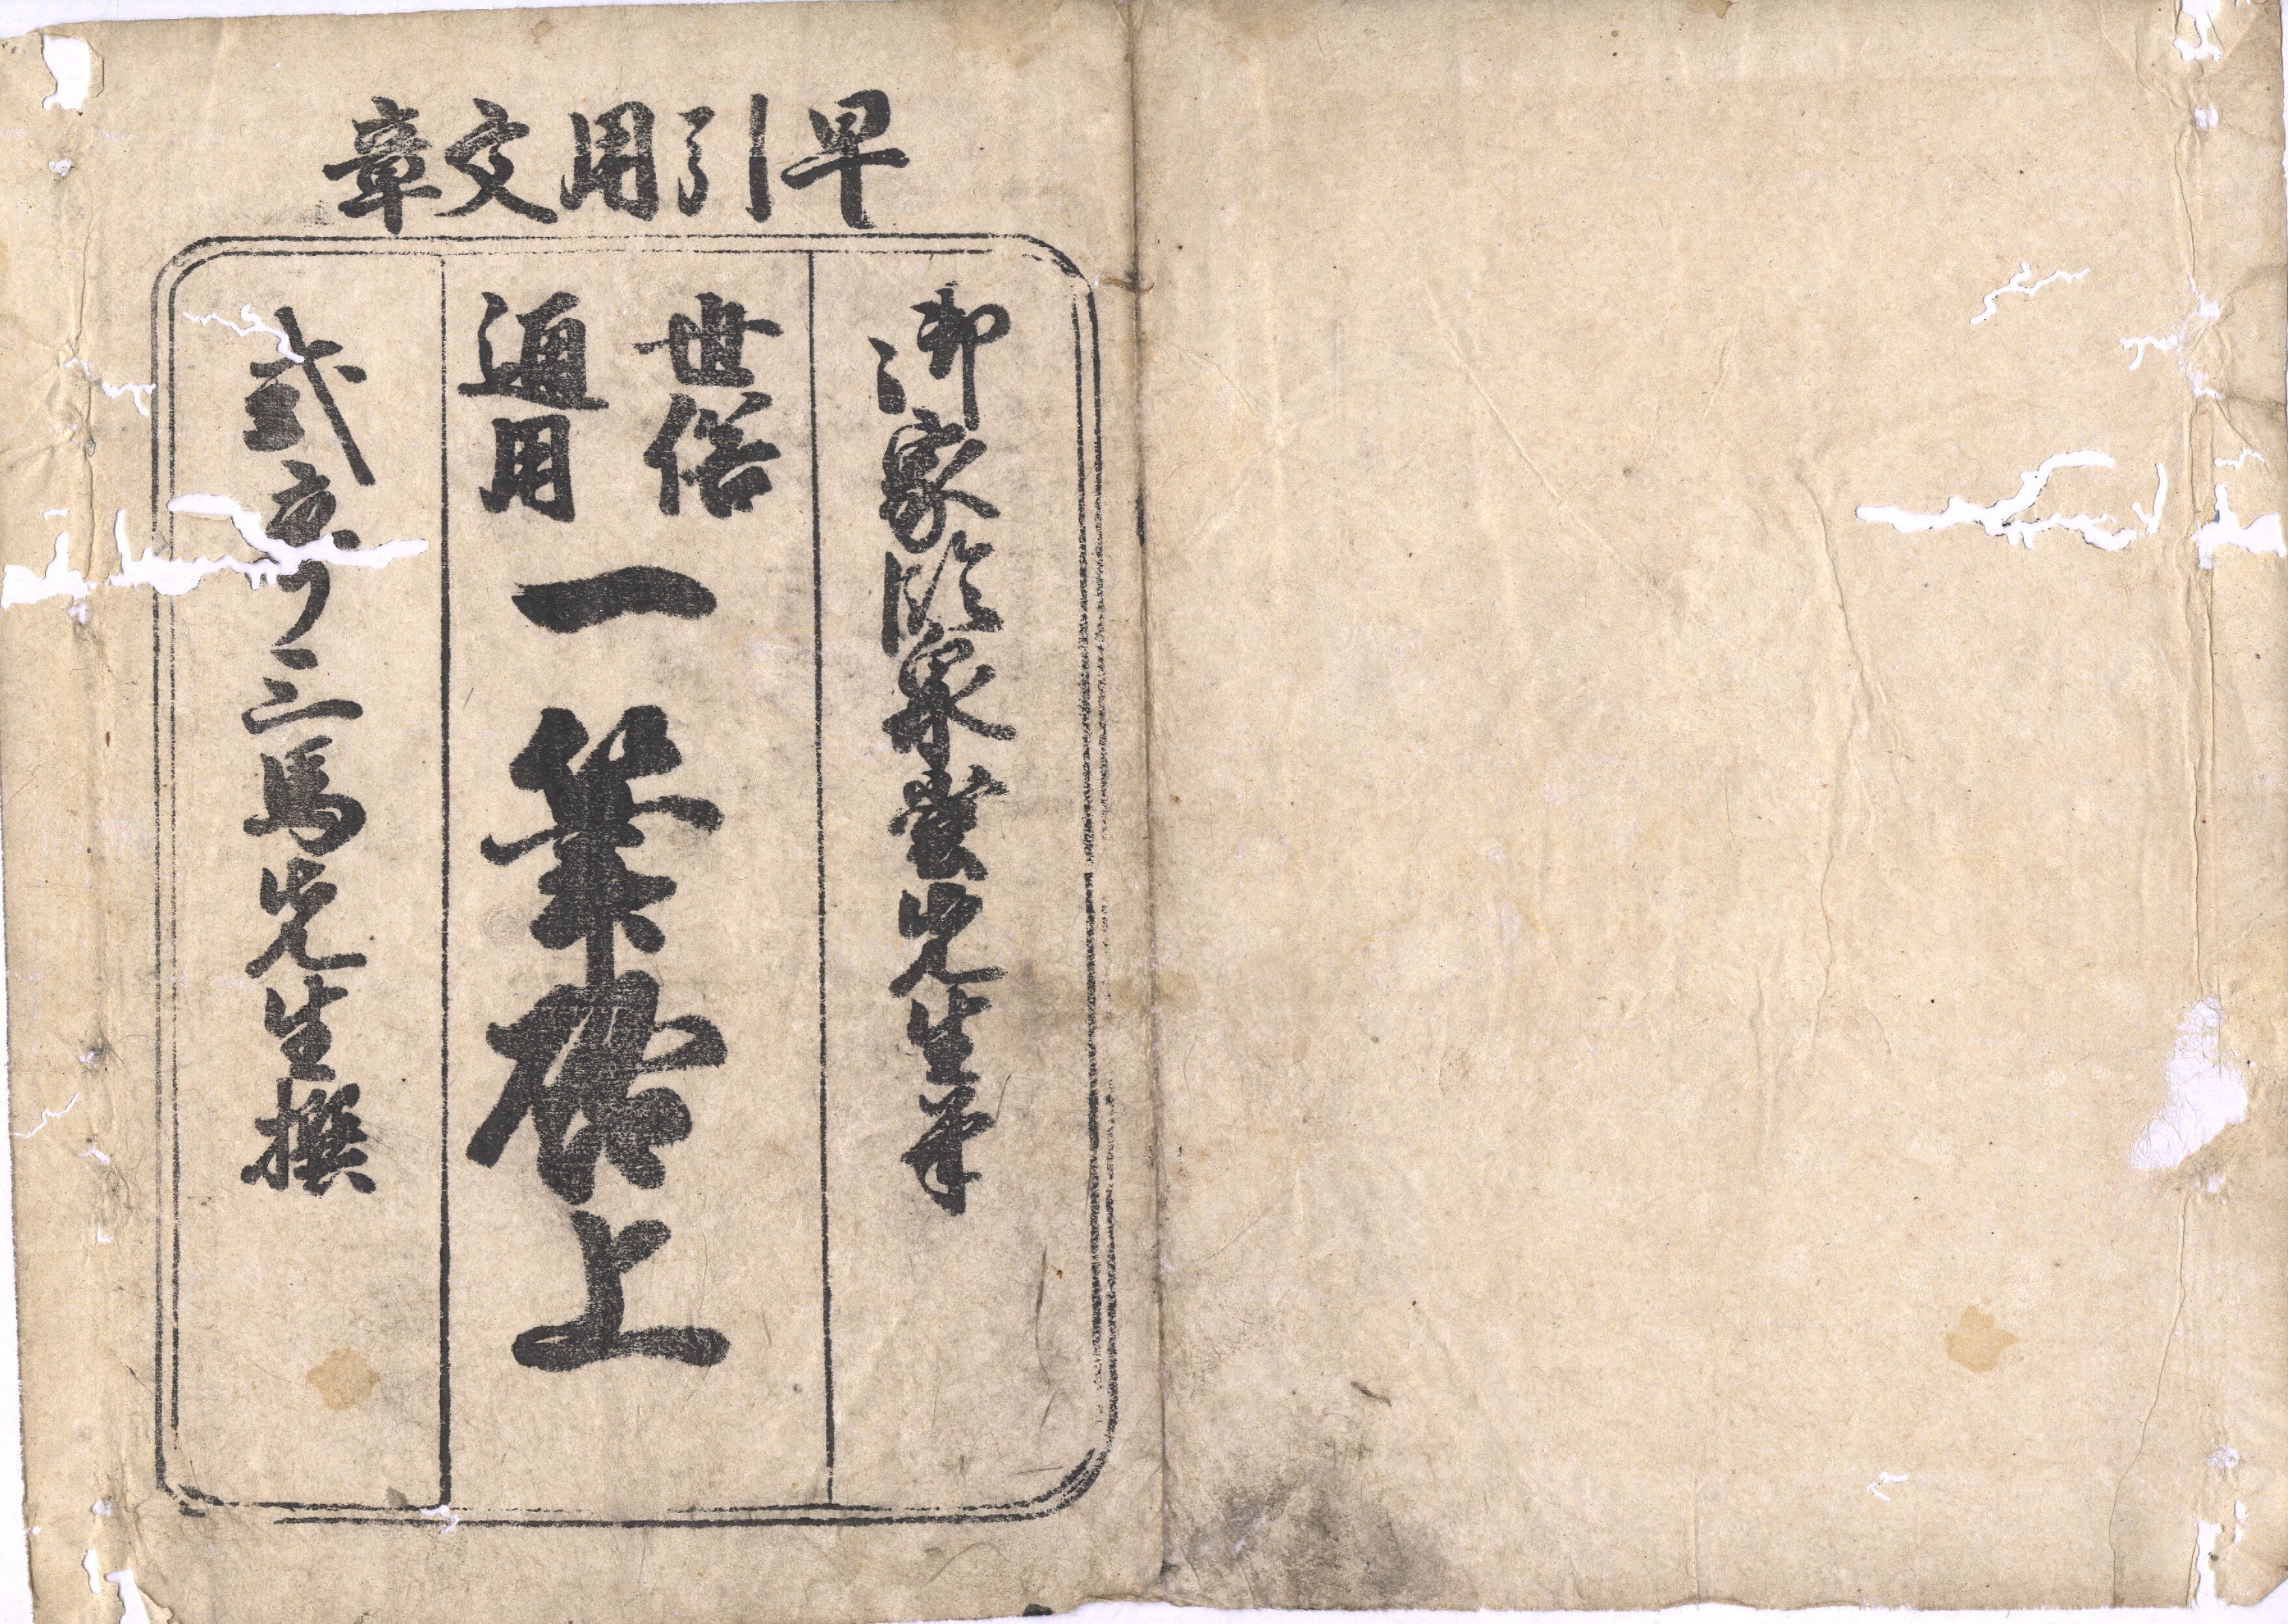 早引用文章
御家臨泉堂先生筆
世俗
通用
一筆啓上
式亭三馬先生撰